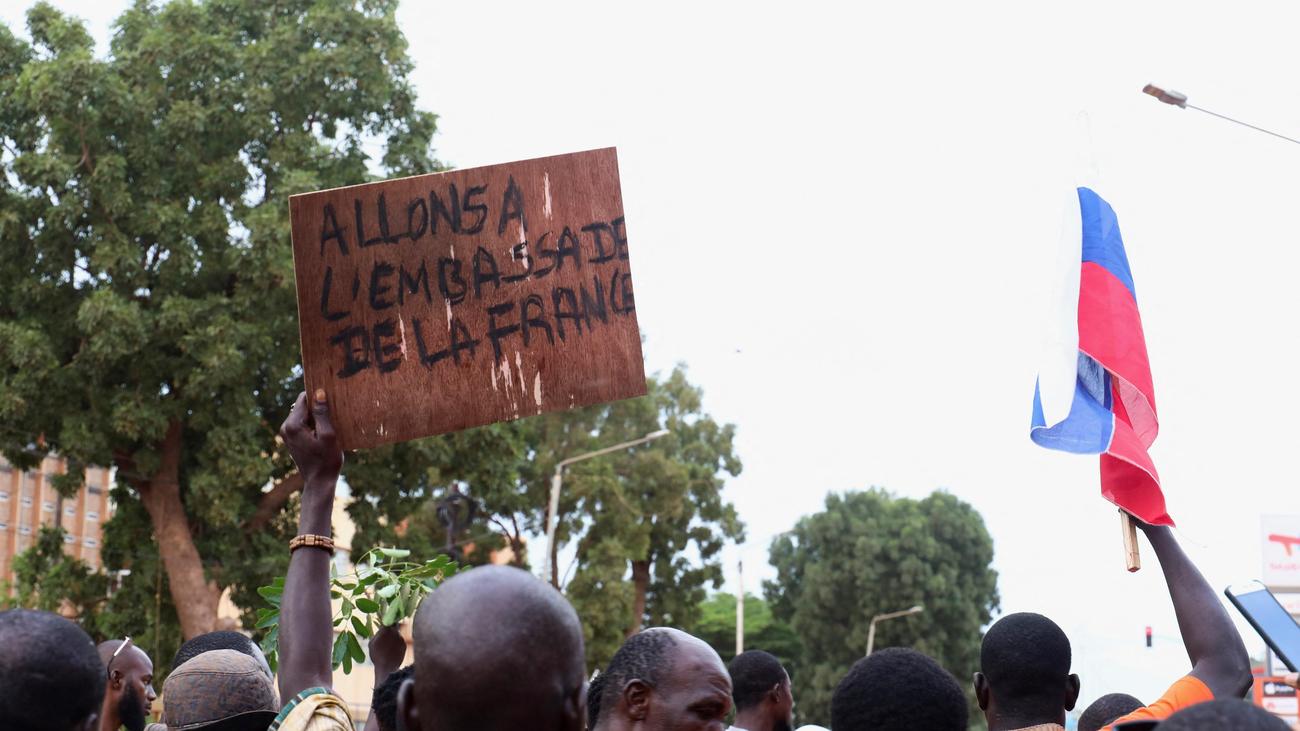 ALLONS A
L'EMBASSADE
DE LA FRANCE